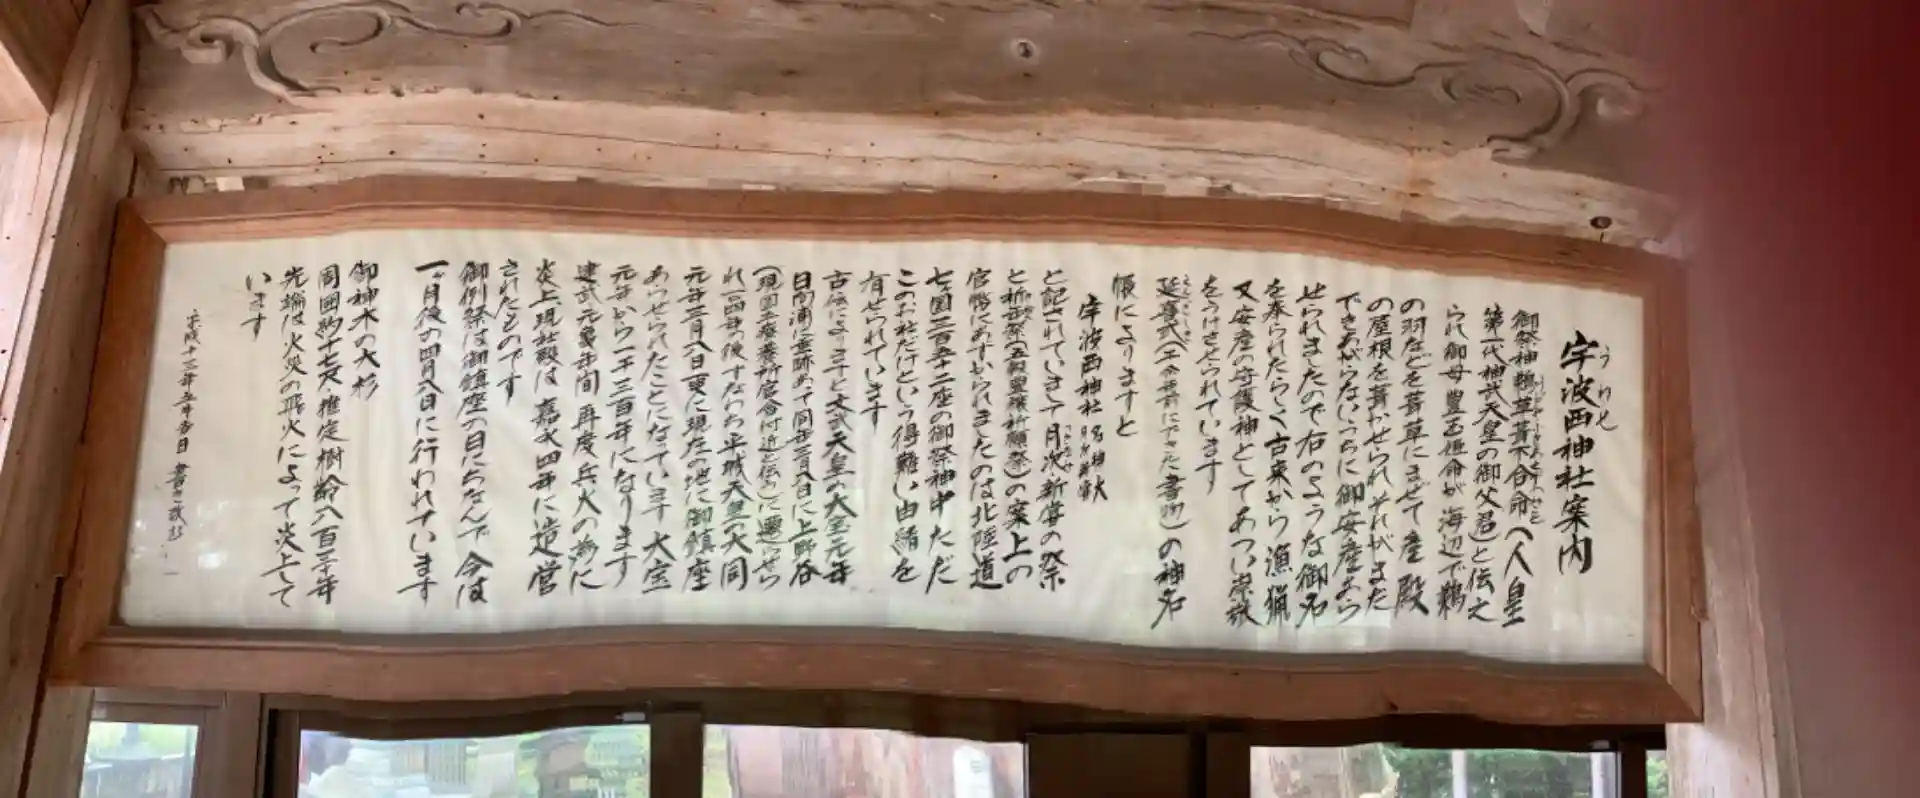 宇波西神社案内
うわせ
御祭神鵜草葺不合命(人皇
第一代神武天皇の御父君)と伝え
られ御母豊玉姫命が海辺で鵜
の羽などを葺草にまぜて産殿
の屋根を葺かせられそれがまた
できあがらないうちに御安産あら
せられましたので右のような御名
を奉られたらしく古来から漁猟
又安産の守護神としてあつい崇敬
をうけさせられています
延喜式(工会所前にできた書物)の神名
帳によりますと
宇波西神社 名神大 月次新嘗
と記されていまして月次新嘗の祭
と祈年祭(五穀豊穣祈願祭)の案上の
官幣にあずかられましたのは北陸道
七国三百五十二座の御祭神中ただ
このお社だけという得難い由緒を
有せられています
古伝によりますと文武天皇の大宝元年
日向浦に垂跡あって同年三月八日に上野谷
に遷らせら
れ 四年の後すなわち平城天皇の大同
元年三月八日更に現在の地に御鎮座
あらせられたことになっています 大宝
元年から一千三百年になります
建武元亀年間 再度兵火の為に
炎上、現社殿は嘉永四年に造営
されたものです
御例祭は御鎮座の日にちなんで今は
一ヶ月後の四月八日に行われています
御神木の大杉
周囲約十七尺推定樹齢八百三十年
先端は火災の飛火によって炎上して
います